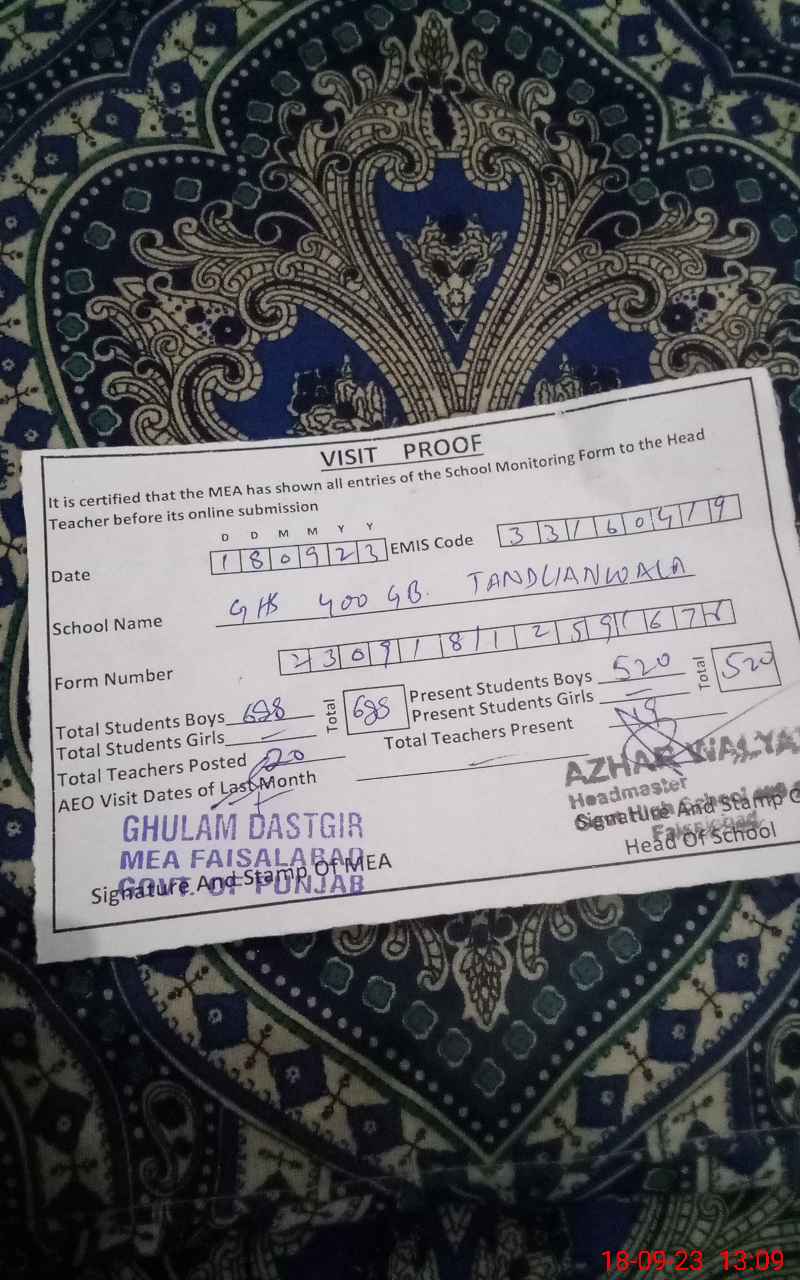 VISIT PROOF
It is certified that the MEA has shown all entries of the School Monitoring Form to the Head
Teacher before its online submission
D D M M Y Y
Date 180923 EMIS Code 33160419
School Name GHS 400 GB. TANDLIANWALA
Form Number
Total Students Boys 688 Total 688 Present Students Boys 520 Total 520
Total Students Girls — Present Students Girls —
Total Teachers Posted 20 Total Teachers Present
AEO Visit Dates of Last Month
GHULAM DASTGIR
MEA FAISALABAD
GOVT. OF PUNJAB
Signature And Stamp Of MEA
AZHAR
Headmaster
Govt High School
Faisalabad
Signature And Stamp O
Head Of School
18-09-23 13:09